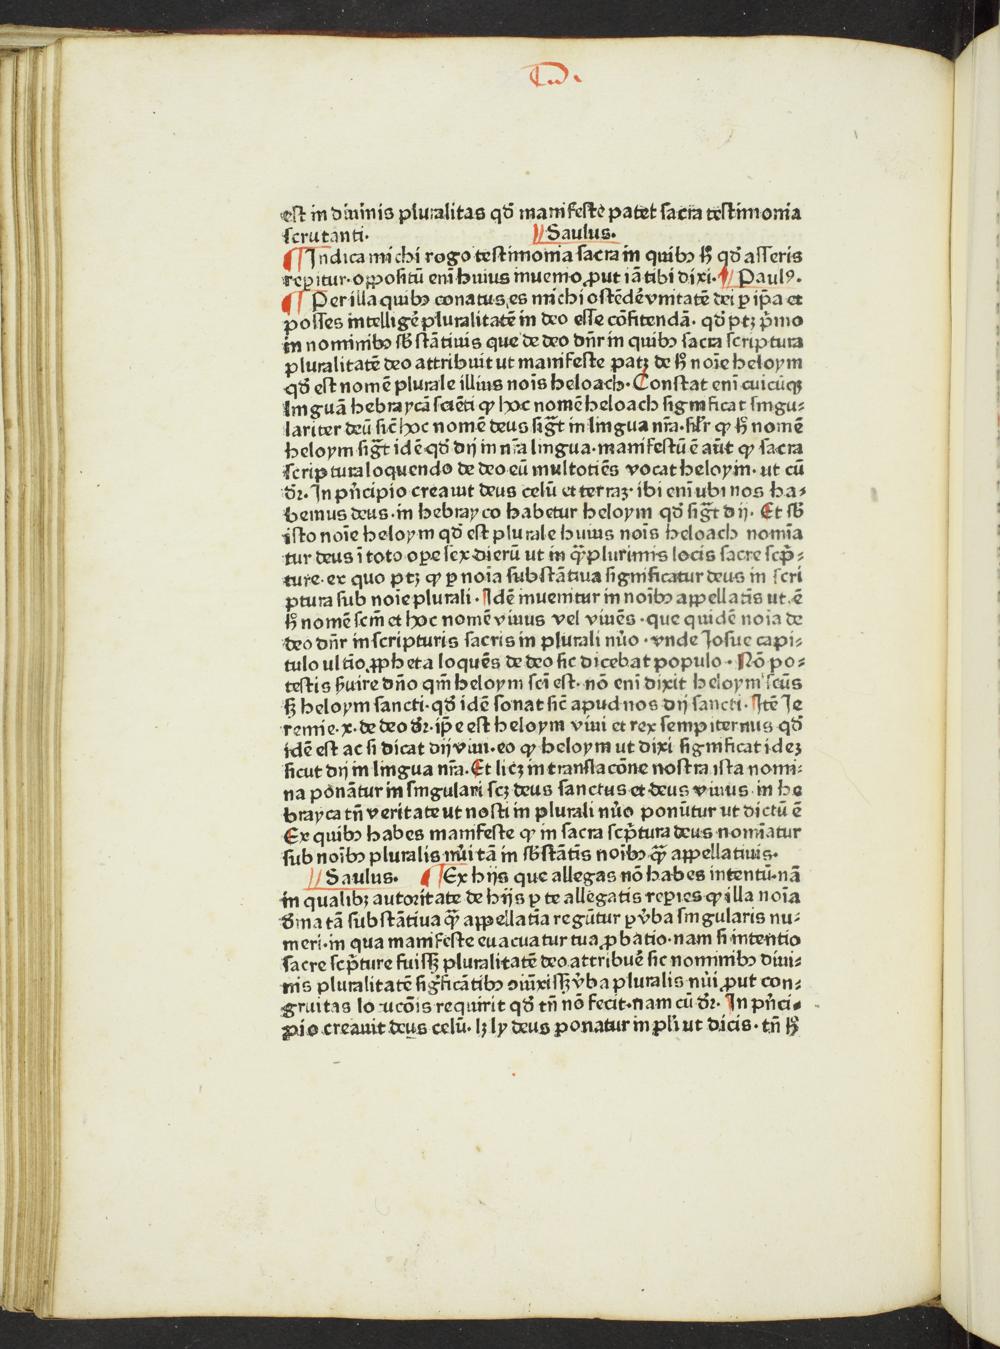 est in diuinis pluralitas qđ manifeste patet sacra testimonia
scrutanti. Saulus.
¶ Indica michi rogo testimonia sacra in quibꝫ ħ qđ asseris
reperitur · oppositū enī huius inuenio ꝓut iā tibi dixi. Paulꝰ.
¶ Per illa quibꝫ conatus es michi ostēdē̉ vnitatē dei ꝑ ip̄a et
posses intelligē̉ pluralitatē in deo esse cōfitendā. qđ ptꝫ p̄mo
in nominibꝫ sb̄stātiuis que de deo dn̄r in quibꝫ sacra scriptura
pluralitatē deo attribuit ut manifeste patꝫ de ħ noīe heloym
qđ est nomē plurale illius noīs heloach. Constat enī cuicūqꝫ
linguā hebraycā sciēti ꝙ hoc nomē heloach significat singu-
lariter deū sic̄ hoc nomē deus sigt̄ in lingua nr̄a. sil̄r ꝙ ħ nomē
heloym sigt̄ idē qđ dij in nr̄a lingua. manifestū ē aūt ꝙ sacra
scriptura loquendo de deo eū multotiēs vocat heloym. ut cū
dꝛ̄. In pn̄cipio creauit deus celū et terraꝫ. ibi enī ubi nos ha-
bemus deus. in hebrayco habetur heloym qđ sigt̄ dij. Et sb̄
isto noīe heloym qđ est plurale huius noīs heloach nomīa
tur deus ī toto oꝑe sex dierū ut in qꝫ̄plurimis locis sacre scp̄-
ture. ex quo ptꝫ ꝙ ꝑ noīa substātiua significatur deus in scri
ptura sub noīe plurali. Idē inuenitur in noībꝫ appellatīs ut ē
ħ nomē scm̄ et hoc nomē viuus vel viuēs. que quidē noīa de
deo dn̄r in scripturis sacris in plurali nūo. vnde Josue capi-
tulo ultīo ꝓpheta loquēs de deo sic dicebat populo. Nō po-
testis ẜuire dn̄o qm̄ heloym scī est. nō enī dixit heloym scūs
sꝫ heloym sancti. qđ idē sonat sic̄ apud nos dij sancti. Itē Je
remie. x. de deo dꝛ̄. ip̄e est heloym viui et rex sempiternus qđ
idē est ac si dicat dij viui. eo ꝙ heloym ut dixi significat ideꝫ
sicut dij in lingua nr̄a. Et licꝫ in translacōne nostra ista nomi-
na ponātur in singulari scꝫ deus sanctus et deus viuus in he
brayca tn̄ veritate ut nosti in plurali nūo ponūtur ut dictū ē
Ex quibꝫ habes manifeste ꝙ in sacra scp̄tura deus nomīatur
sub noībꝫ pluralis nūi tā in sb̄stātīs noībꝫ qꝫ̄ appellatiuis.
Saulus. ¶ Ex hijs que allegas nō habes intentū. nā
in qualibꝫ autoritate de hijs ꝑ te allegatis reperies ꝙ illa noīa
diīna tā substātiua qꝫ̄ appellatīa regūtur ꝑ v̄ba singularis nu-
meri. in qua manifeste euacuatur tua ꝓbatio. nam si intentio
sacre scp̄ture fuissꝫ pluralitatē deo attribuē̉ sic nominibꝫ diui-
nis pluralitatē sigficātibꝫ diūxissꝫ v̄ba pluralis nūi ꝓut con-
gruitas locucōis requirit qđ tn̄ nō fecit. nam cū dꝛ̄. In pn̄ci-
pio creauit deus celū. lꝫ ly deus ponatur in pl̄i ut dicis. tn̄ ħ